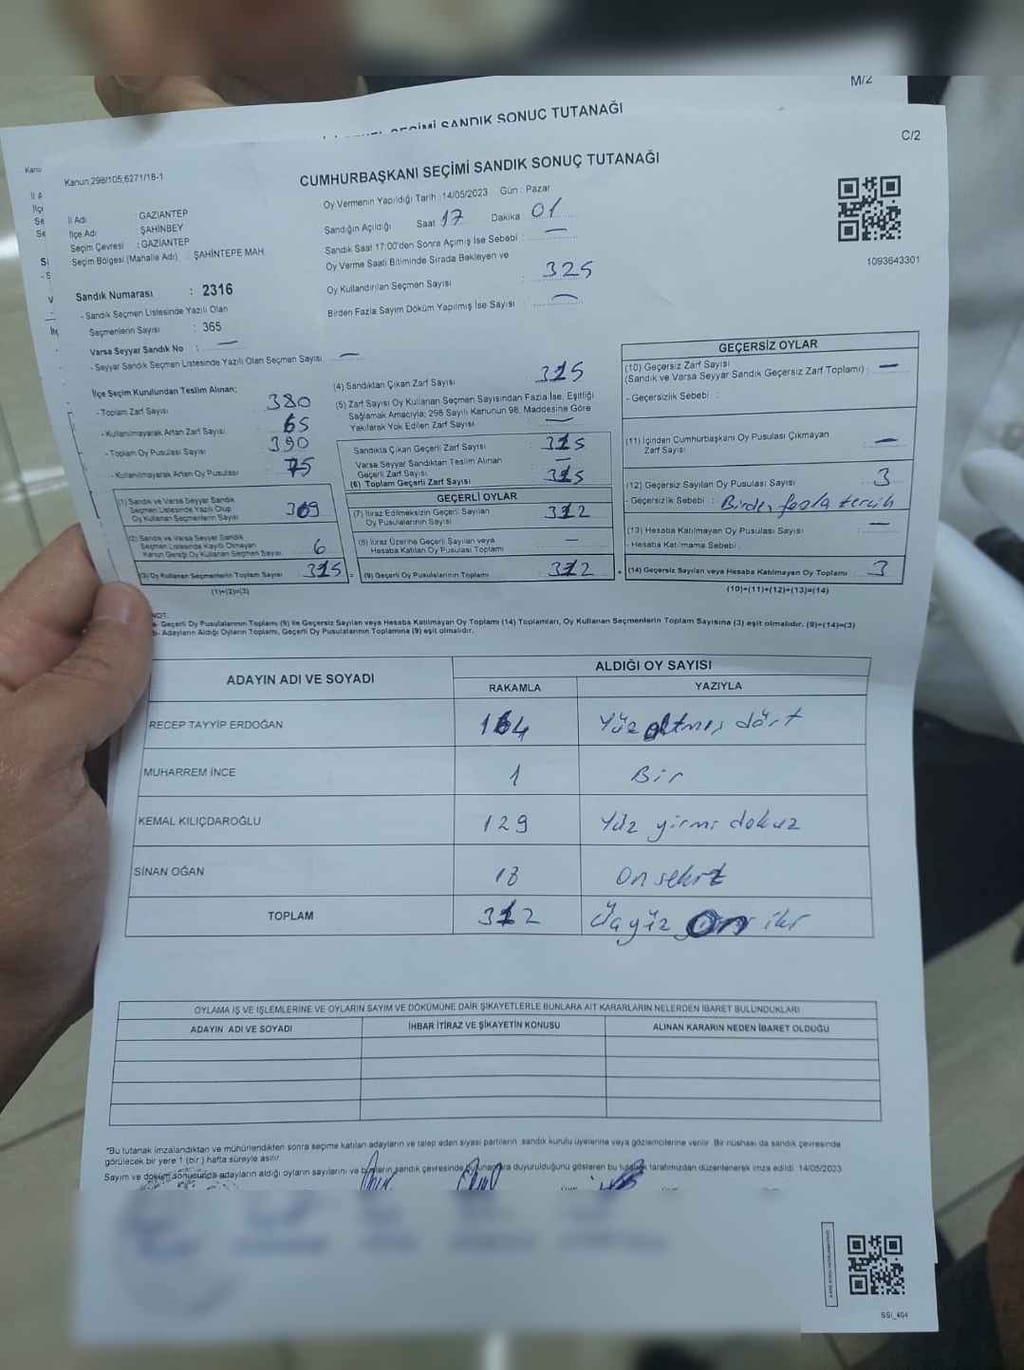 M/2
SEÇİMİ SANDIK SONUÇ TUTANAĞI
C/2
Kanun 298/105;6271/18-1
CUMHURBAŞKANI SEÇİMİ SANDIK SONUÇ TUTANAĞI
Oy Vermenin Yapıldığı Tarih :14/05/2023 Gün : Pazar
İl Adı : GAZİANTEP
İlçe Adı : ŞAHİNBEY
Seçim Çevresi : GAZİANTEP
Seçim Bölgesi (Mahalle Adı) : ŞAHİNTEPE MAH
Sandığın Açıldığı Saat 17 Dakika 01
Sandık Saat 17:00'den Sonra Açımış İse Sebebi : —
Oy Verme Saati Bitiminde Sırada Bekleyen ve
Oy Kullandırılan Seçmen Sayısı : 325
Birden Fazla Sayım Döküm Yapılmış İse Sayısı : —
1093643301
Sandık Numarası : 2316
- Sandık Seçmen Listesinde Yazılı Olan
Seçmenlerin Sayısı : 365
Varsa Seyyar Sandık No : —
- Seyyar Sandık Seçmen Listesinde Yazılı Olan Seçmen Sayısı —
İlçe Seçim Kurulundan Teslim Alınan;
- Toplam Zarf Sayısı 380
- Kullanılmayarak Artan Zarf Sayısı 65
- Toplam Oy Pusulası Sayısı 390
- Kullanılmayarak Artan Oy Pusulası 75
(1) Sandık ve Varsa Seyyar Sandık
Seçmen Listesinde Yazılı Olup
Oy Kullanan Seçmenlerin Sayısı 309
(2) Sandık ve Varsa Seyyar Sandık
Seçmen Listesinde Kayıtlı Olmayan
Kanun Gereği Oy Kullanan Seçmen Sayısı 6
(3) Oy Kullanan Seçmenlerin Toplam Sayısı 315
(1)+(2)=(3)
(4) Sandıktan Çıkan Zarf Sayısı 315
(5) Zarf Sayısı Oy Kullanan Seçmen Sayısından Fazla İse, Eşitliği
Sağlamak Amacıyla; 298 Sayılı Kanunun 98. Maddesine Göre
Yakılarak Yok Edilen Zarf Sayısı —
Sandıkta Çıkan Geçerli Zarf Sayısı 315
Varsa Seyyar Sandıktan Teslim Alınan
Geçerli Zarf Sayısı
(6) Toplam Geçerli Zarf Sayısı 315
GEÇERLİ OYLAR
(7) İtiraz Edilmeksizin Geçerli Sayılan
Oy Pusulalarının Sayısı 312
(8) İtiraz Üzerine Geçerli Sayılan veya
Hesaba Katılan Oy Pusulası Toplamı —
= (9) Geçerli Oy Pusulalarının Toplamı 312 +
GEÇERSİZ OYLAR
(10) Geçersiz Zarf Sayısı
(Sandık ve Varsa Seyyar Sandık Geçersiz Zarf Toplamı) : —
- Geçersizlik Sebebi :
(11) İçinden Cumhurbaşkanı Oy Pusulası Çıkmayan
Zarf Sayısı —
(12) Geçersiz Sayılan Oy Pusulası Sayısı 3
- Geçersizlik Sebebi : Birden fazla tercih
(13) Hesaba Katılmayan Oy Pusulası Sayısı —
- Hesaba Katılmama Sebebi :
(14) Geçersiz Sayılan veya Hesaba Katılmayan Oy Toplamı 3
(10)+(11)+(12)+(13)=(14)
NOT:
a- Geçerli Oy Pusulalarının Toplamı (9) ile Geçersiz Sayılan veya Hesaba Katılmayan Oy Toplamı (14) Toplamları, Oy Kullanan Seçmenlerin Toplam Sayısına (3) eşit olmalıdır. (9)+(14)=(3)
b- Adayların Aldığı Oyların Toplamı, Geçerli Oy Pusulalarının Toplamına (9) eşit olmalıdır.
ADAYIN ADI VE SOYADI ALDIĞI OY SAYISI
RAKAMLA YAZIYLA
RECEP TAYYİP ERDOĞAN 164 Yüz altmış dört
MUHARREM İNCE 1 Bir
KEMAL KILIÇDAROĞLU 129 Yüz yirmi dokuz
SİNAN OĞAN 18 On sekiz
TOPLAM 312 Üçyüz on iki
OYLAMA İŞ VE İŞLEMLERİNE VE OYLARIN SAYIM VE DÖKÜMÜNE DAİR ŞİKAYETLERLE BUNLARA AİT KARARLARIN NELERDEN İBARET BULUNDUKLARI
ADAYIN ADI VE SOYADI İHBAR İTİRAZ VE ŞİKAYETİN KONUSU ALINAN KARARIN NEDEN İBARET OLDUĞU
*Bu tutanak imzalandıktan ve mühürlendikten sonra seçime katılan adayların ve talep eden siyasi partilerin sandık kurulu üyelerine veya gözlemcilerine verilir. Bir nüshası da sandık çevresinde
görülecek bir yere 1 (bir) hafta süreyle asılır.
Sayım ve döküm sonucunda adayların aldığı oyların sayılarını ve bunların sandık çevresinde duyurulduğunu gösteren bu tutanak tarafımızdan düzenlenerek imza edildi. 14/05/2023
SSI_404